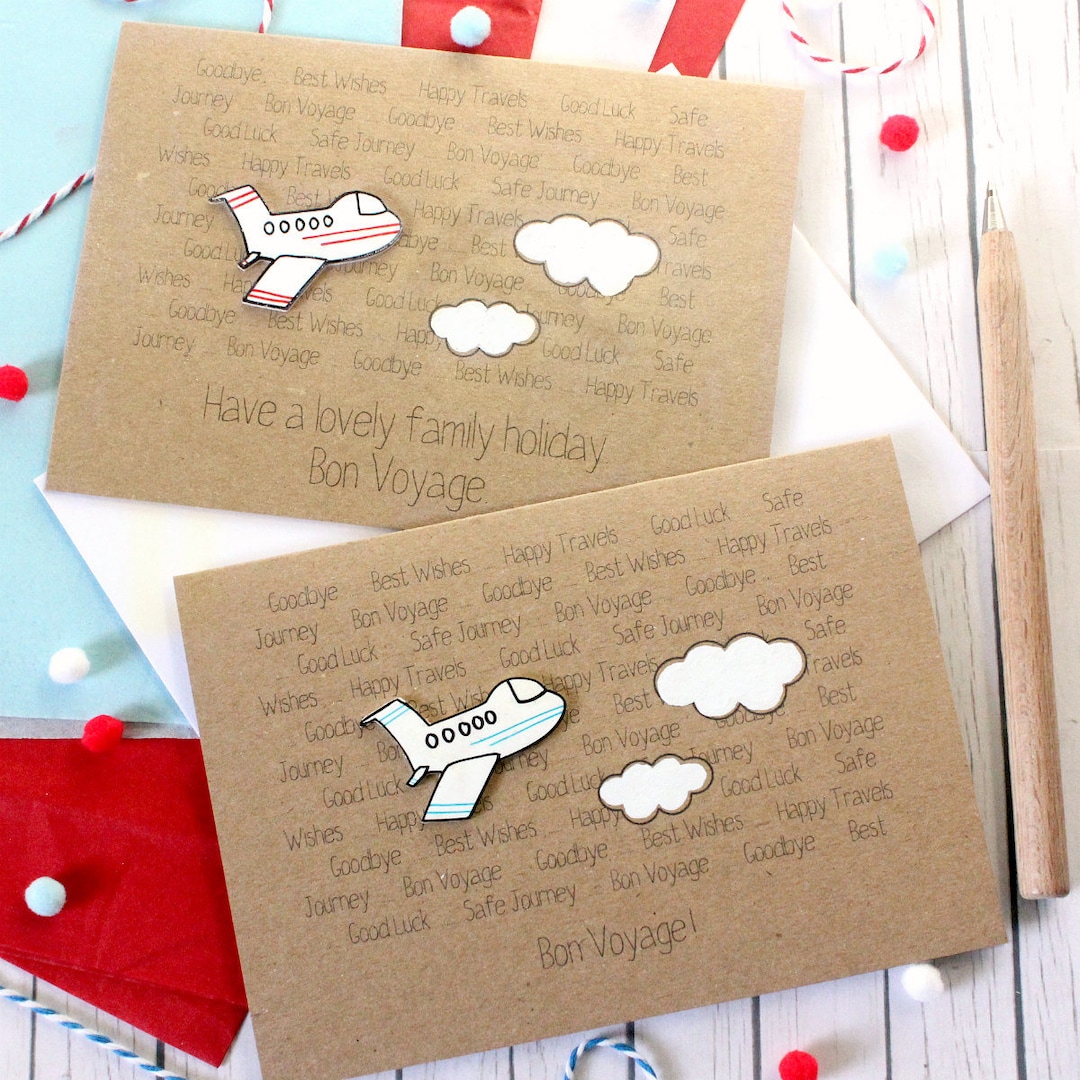 Goodbye Best Wishes Happy Travels Good Luck Safe
Journey Bon Voyage Goodbye Best Wishes Happy Travels
Good Luck Safe Journey Bon Voyage Goodbye Best
Wishes Happy Travels Good Luck Safe Journey Bon Voyage
Best Happy Travels Safe
Journey Best
Bon Voyage Best
Wishes Good Luck Journey Bon Voyage
Goodbye Best Wishes Happy Good Luck Safe
Journey Bon Voyage Goodbye Best Wishes Happy Travels
Have a lovely family holiday
Bon Voyage.
Goodbye Best Wishes Happy Travels Good Luck Safe
Journey Bon Voyage Goodbye Best Wishes Happy Travels
Good Luck Safe Journey Bon Voyage Goodbye Best
Wishes Happy Travels Good Luck Safe Journey Bon Voyage
Best Wishes Happy Travels Safe
Journey Bon Best Travels
Good Luck Bon Voyage Goodbye Best
Wishes Happy Good Luck Journey Bon Voyage
Goodbye Best Wishes Happy Good Luck Safe
Journey Bon Voyage Goodbye Best Wishes Happy Travels
Good Luck Safe Journey Bon Voyage Goodbye Best
Bon Voyage!